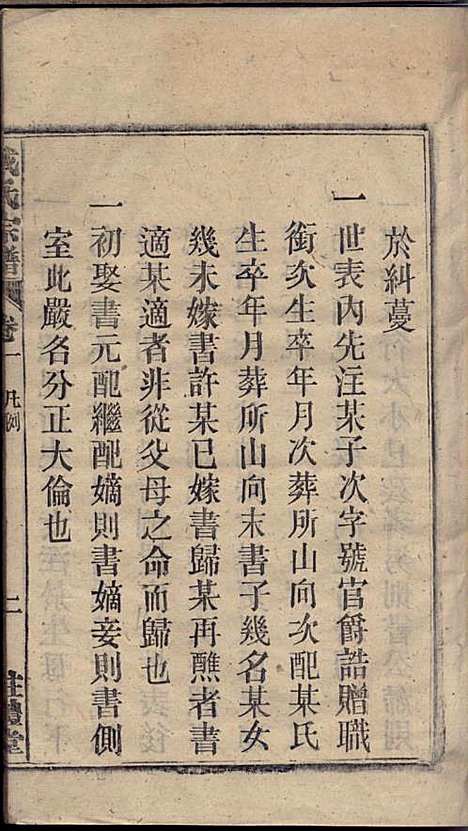 於糾蔓
一世表內先注某子次字號官爵誥贈職
銜次生卒年月次葬所山向次配某氏
生卒年月葬所山向末書子幾名某女
幾未嫁書許某已嫁書歸某再醮者書
適某適者非從父母之命而歸也
一初娶書元配繼配嫡則書嫡妾則書側
室此嚴各分正大倫也
氏宗譜
卷一
凡例
二
禮堂